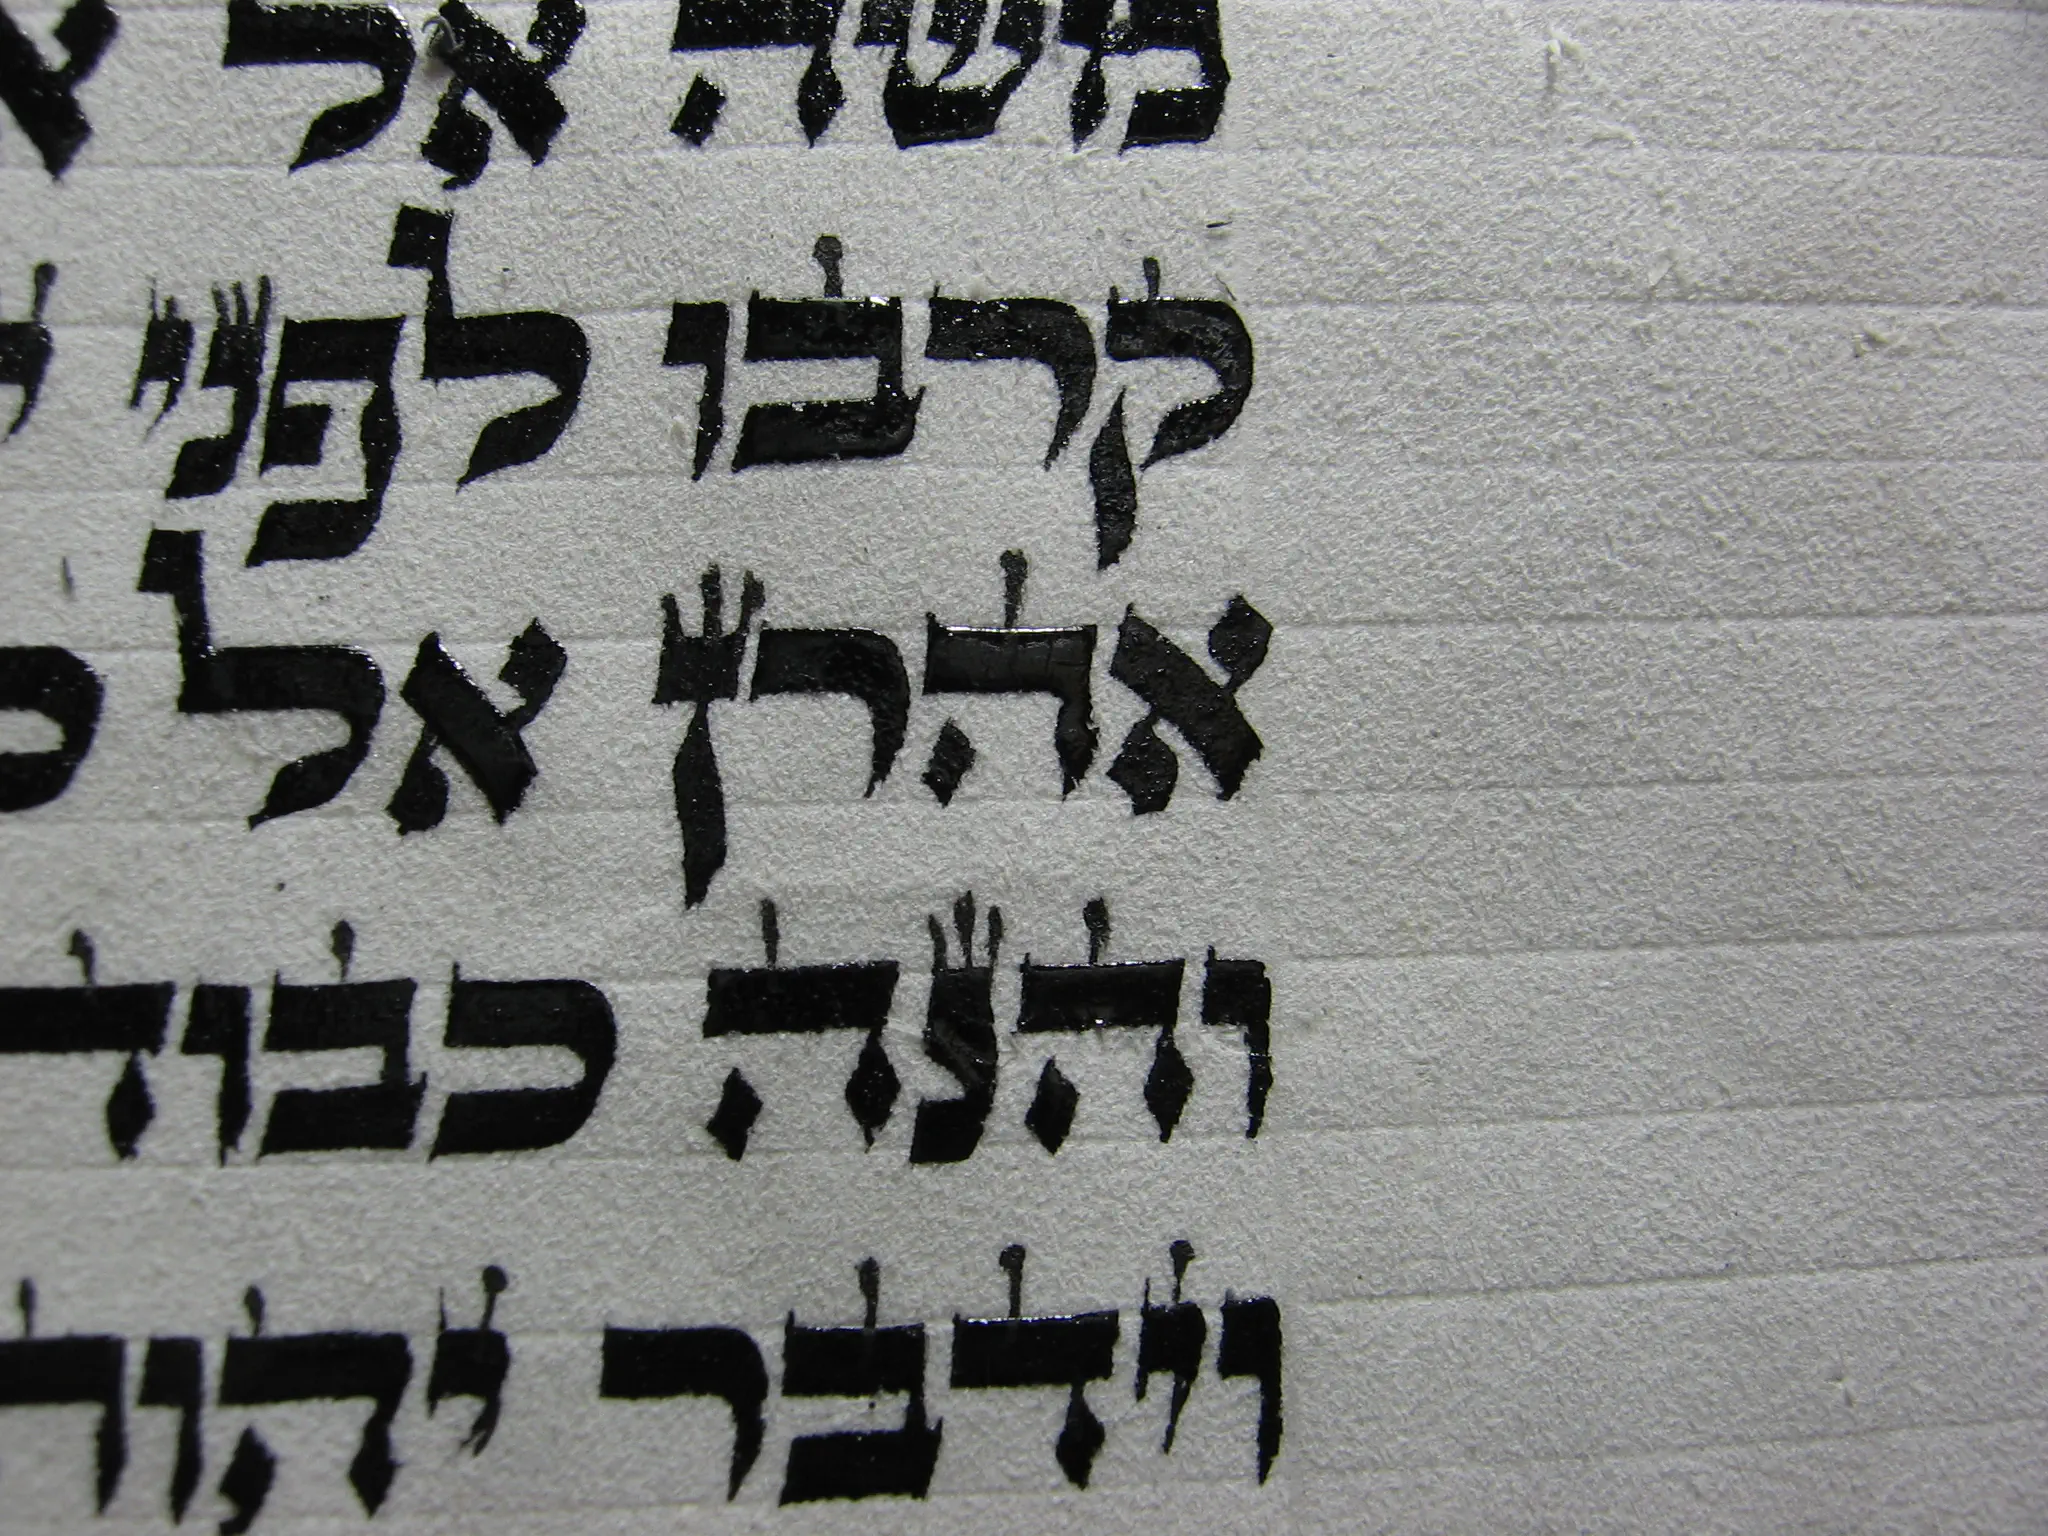 משה אל
קרבו לפני
אהרן אל
והנה כבוד
וידבר יהוה